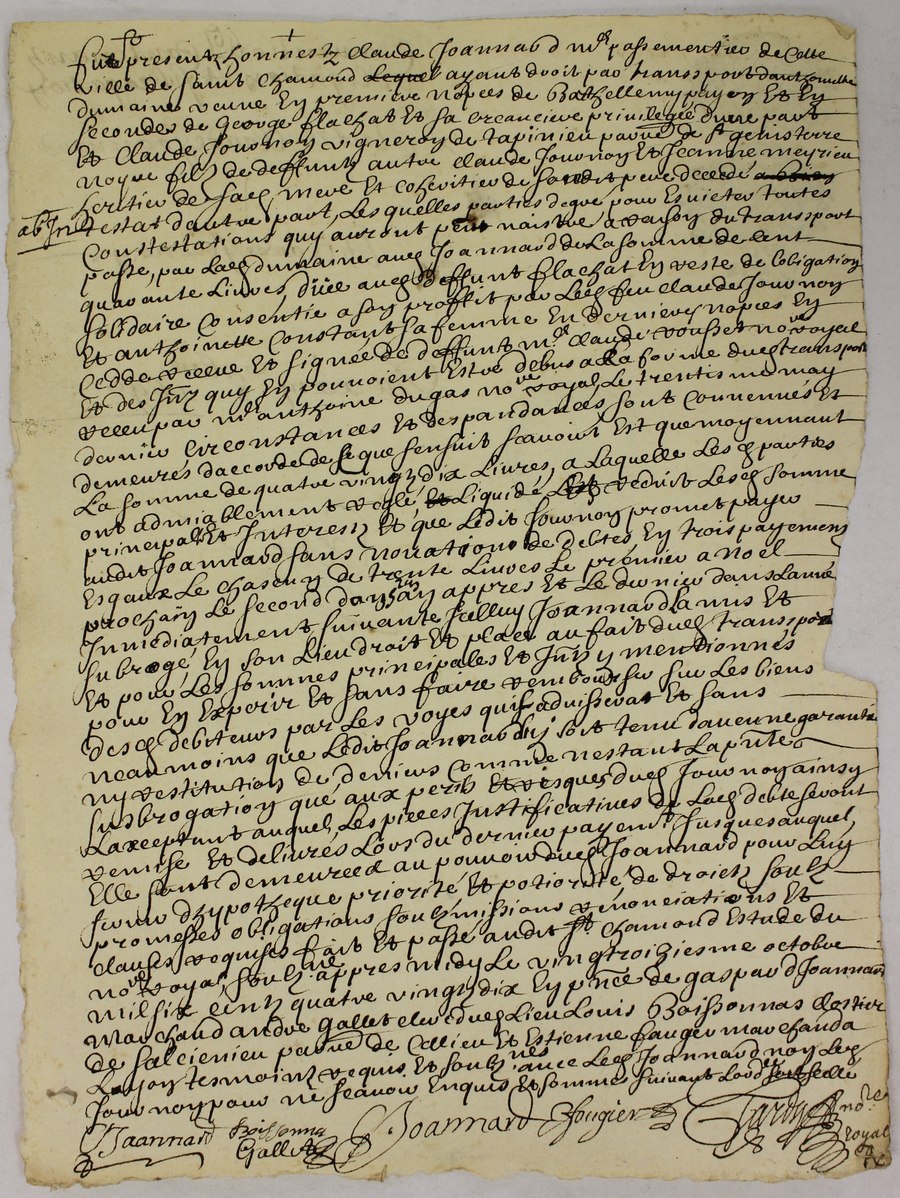 furent presentz honnestz Claude Joannard me passementier de Cette
ville de saint Chamond Lequel ayant droit par transsport danthoinette
dumaine veuve En premiere nopces de Bathellemy payen Et En
secondes de George flachat Et sa Creanciere privilegiée dune part
Et Claude Journoy vigneron de tapinieu parre de St genisterre
noyre filz de deffuntz autre Claude Journoy Et Jeanne meyrieu
heritier de sad mere Et Coheritier de sondit pere decedé
ab Jntestat dautre part, Lesquelles parties de gré pour Esvieter toutes
Constestations quy auront peut naistre a raison du transsport
passé, par Lad dumaine aud Joannard de La somme de Cent
quarante Livres, düe aud deffunt flachat En reste de Lobligation
solidaire Consentie a son proffit par Led feu Claude Journoy
Et anthoinette Constant sa femme En dernieres nopces En
Cedde receue Et signée de deffunt me Claude rousset nore royal
Et des Jntz quy En pouvoient Estre debus a La forme dud transport
receu par me anthoine dugas nore royal Le trentiesme may
dernier Circonstances Et despandances sont Convennës Et
demeurés daccorde de Ce que sensuit scavoir Est que moyennant
La somme de quatre vingtz dix Livres, a Laquelle Lesd parties
ont admiablement reglé, Liquidé, Et redüit Lesd somme
principal Et Interestz Et que Ledit Journoy promet payer
audit Joannard sans novation de debtes En trois payementz
Esgaux Le chascun de trente Livres Le premier a Noel
prochain Le second dans un an appres Et Le dernier dans Lannée
Jnmediatement suivante Jcelluy Joannard La mis Et
subrogé, En son Lieu droit Et place au fait dud transsport
Et pour Les sommes principales Et Jntz y mentionnés
pour En Experir Et sans faire rembourser sur Les biens
desd debiteurs par Les voyes quil advissera Et sans
neanmoins que Ledit Joannard soit tenu daucune garantie
ny restitution de deniers Comme nestant La pnte
subrogation que aux perilz Et risques dud Journoy ainsy
Laxceptant auquel, Les pieces Justificatives de Lad debte seront
remise Et delivrés Lors du dernier payemt Jusques auquel,
Elle sont demeureed au pouvoir dud Joannard pour Luy
servir dhypotheque priorité Et potiorité de droictz soubz
promesses obligations soubzmissions renonciations Et
Clauses requises fait Et passé audit St Chamond Estude du
nore royal soubzne appres midy Le vingtroiziesme octobre
mil six Centz quatre vingtz dix En pnce de gaspard Joannard
marchand andre gallet clerc dud Lieu Louis Boissonnas clostier
de salcienieu parre de Cellieu Et Estienne fougier marchand a
Layon tesmoinz requis Et soubznés avec Led Joannard non Led
Journoy pour ne scavoir Enquis Et somme suivant Lordre
JJaannard Boissonna Joannard Fougier Tardy nore
Gallet royal